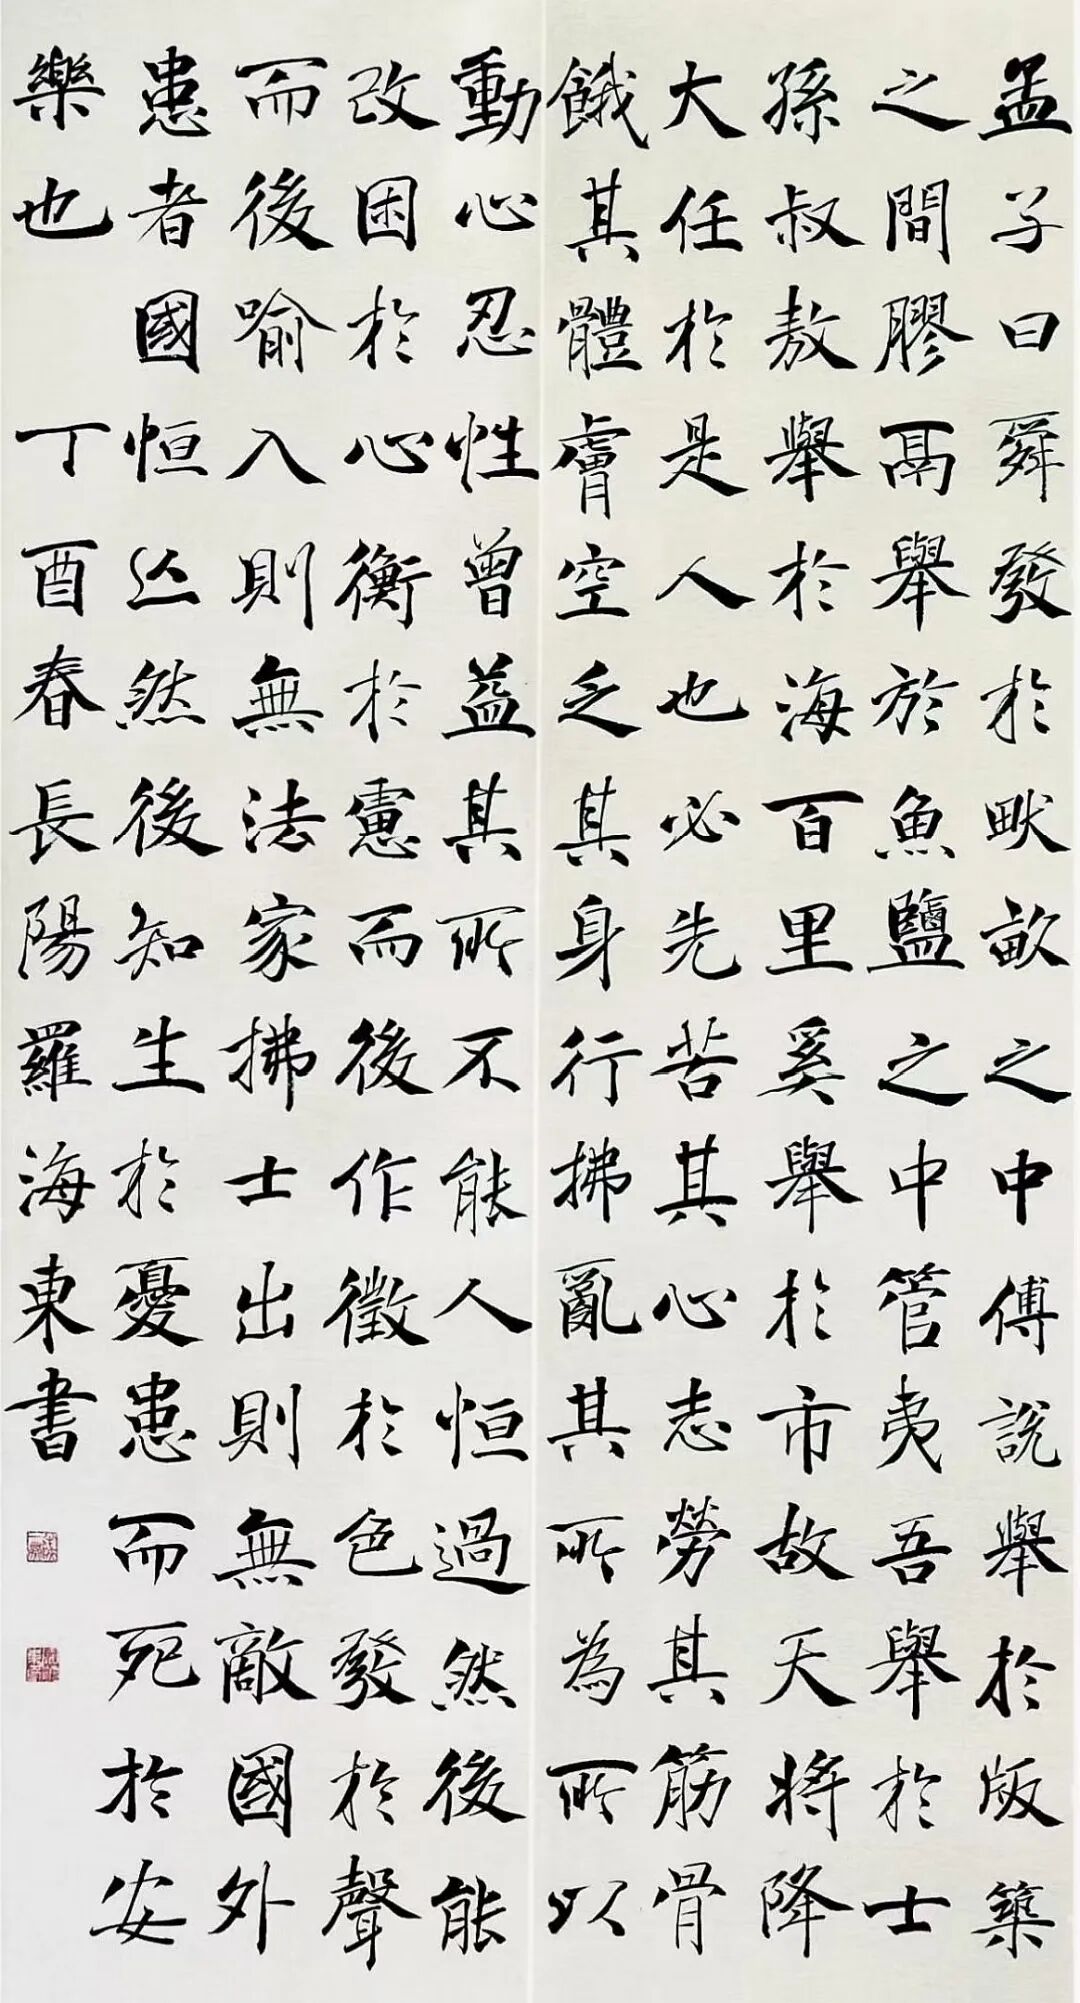 孟子曰舜發於畎畝之中傅說舉於版築
之間膠鬲舉於魚鹽之中管夷吾舉於士
孫叔敖舉於海百里奚舉於市故天將降
大任於是人也必先苦其心志勞其筋骨
餓其體膚空乏其身行拂亂其所為所以
動心忍性曾益其所不能人恒過然後能
改困於心衡於慮而後作徵於色發於聲
而後喻入則無法家拂士出則無敵國外
患者國恒亡然後知生於憂患而死於安
樂也 丁酉春長陽羅海東書